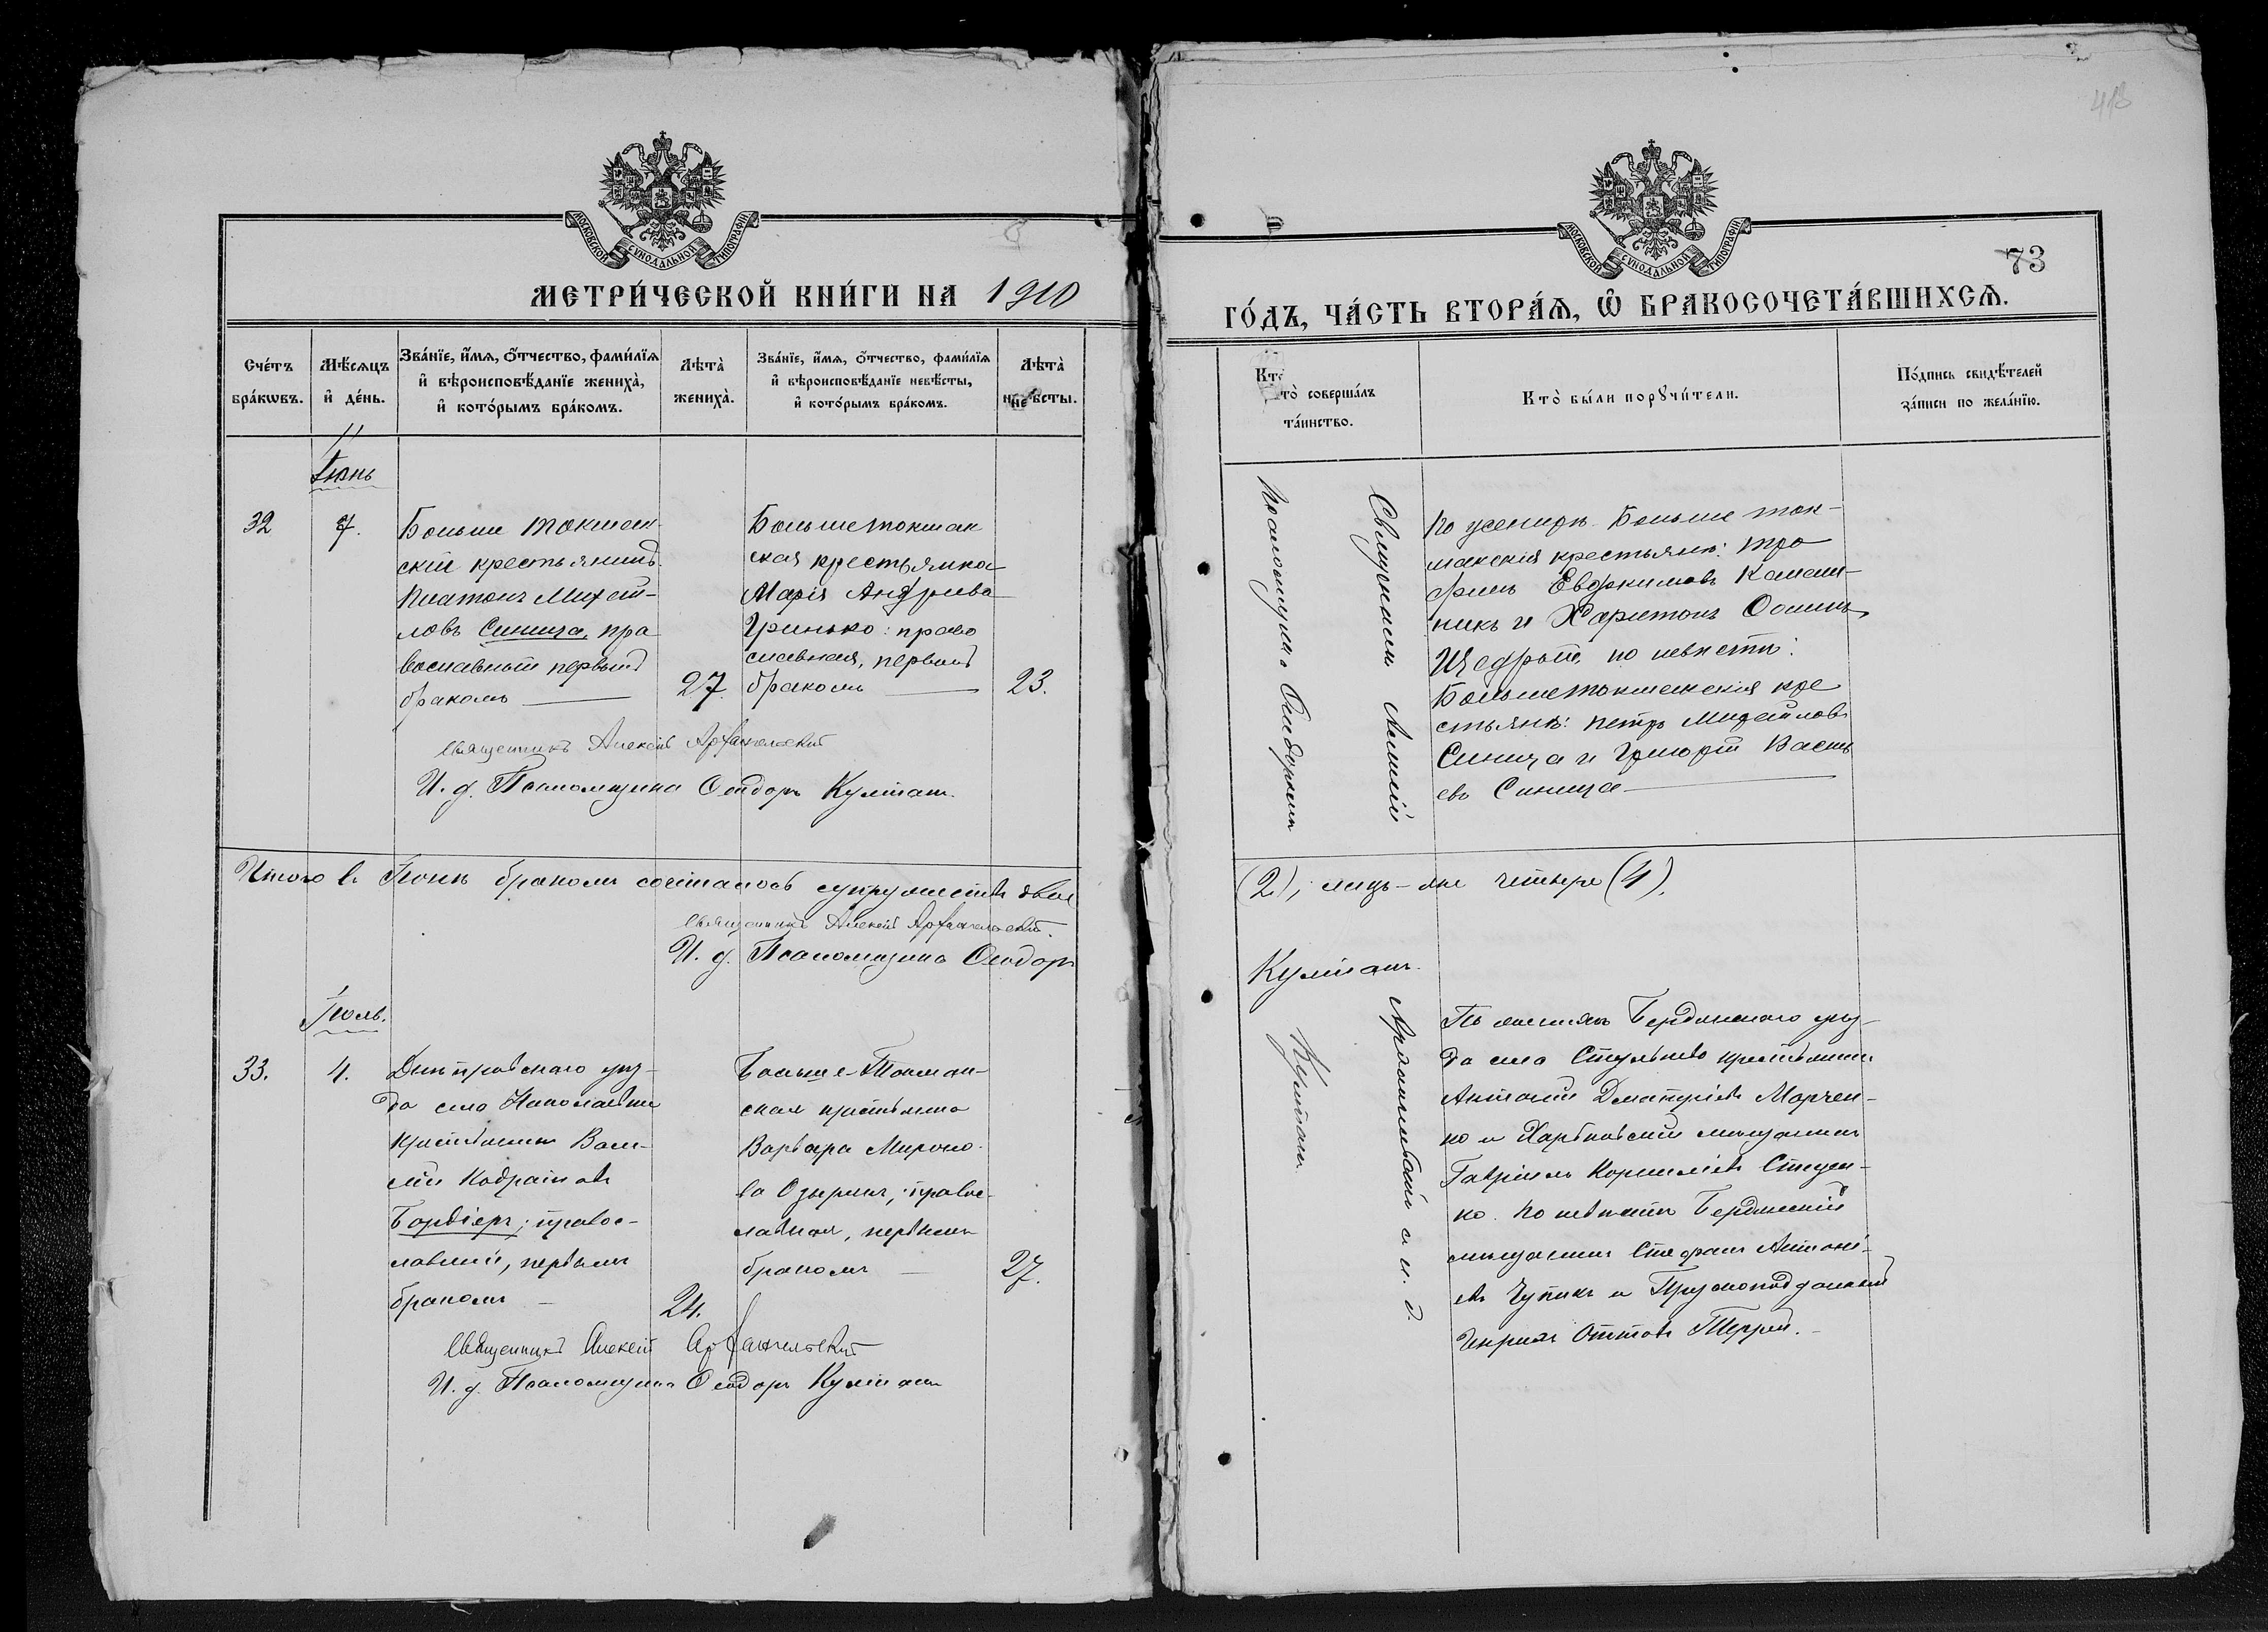 418
МОСКОВСКОЙ СѴНОДАЛЬНОЙ ТИПОГРАФІИ
МЕТРИ́ЧЕСКОЙ КНИ́ГИ НА 1910
Сче́тъ бра́кѡвъ.
Мѣ́сяцъ и҆ де́нь.
Зва́нїе, и҆́мѧ, ѻ҆́тчество, фами́лїѧ и҆ вѣроисповѣ́данїе жениха̀, и҆ кото́рымъ бра́комъ.
Лѣта̀ жениха̀.
Зва́нїе, и҆́мѧ, ѻ҆́тчество, фами́лїѧ и҆ вѣроисповѣ́данїе невѣ́сты, и҆ кото́рымъ бра́комъ.
Лѣта̀ невѣ́сты.
Іюнь
32
7.
Больше Токмак-
скій крестьянинъ
Платонъ Михай-
ловъ Синица, пра
вославный первымъ
бракомъ
27.
Большетокмак
ская крестьянка
Марія Андреева
Гринько: право
славная, первымъ
бракомъ
23.
Священникъ Алексій Архангельскій
И. д. Псаломщика Ѳеодоръ Кулішъ
Итого въ Іюнѣ бракомъ сочеталось супружествъ двое
Священникъ Алексій Архангельскій.
И. д. Псаломщика Ѳеодоръ
Іюль.
33.
4.
Днѣпровскаго уѣз-
да села Николаевки
крестьянинъ Васи-
лій Кодратовъ
; правос-
лавный, первымъ
бракомъ
24.
Больше-Токмак-
ская крестьянка
Варвара Мироно-
ва , правос-
лавная, первымъ
бракомъ
27.
Священникъ Алексій Архангельскій
И. д. Псаломщика Ѳеодоръ Кулішъ
МОСКОВСКОЙ СѴНОДАЛЬНОЙ ТИПОГРАФІИ
73
ГО́ДЪ, ЧА́СТЬ ВТОРА́Ѧ, Ѽ БРАКОСОЧЕТА́ВШИХСѦ.
Кто̀ соверша́лъ та́инство.
Кто̀ бы́ли порꙋчи́тели.
По́дпись свидѣ́телей за́писи по жела́нїю.
Священникъ Алексій
Архангельскій и и. д.
Псаломщика Ѳеодоръ
Кулішъ
По женихѣ Больше ток-
макскія крестьяне: Тро
фимъ Евфимовъ
никъ и Харитонъ
Щедрый, по невѣстѣ:
Большетокмакскія кре
стьяне: Петръ Михайловъ
Синица и Григорій Василь
евъ Синица
(2), лицъ-же четыре (4).
Кулішъ.
По женихѣ Бердянскаго уѣз-
да села крестьянинъ
Дмитріевъ Марчен-
ко и Харьковскій мѣщанинъ
Гавріилъ Корниліевъ
ко. По невѣстѣ Бердянскій
мѣщанинъ Стефанъ Антоні-
евъ Чупикъ и Прусоподданный
Генрихъ Оттовъ